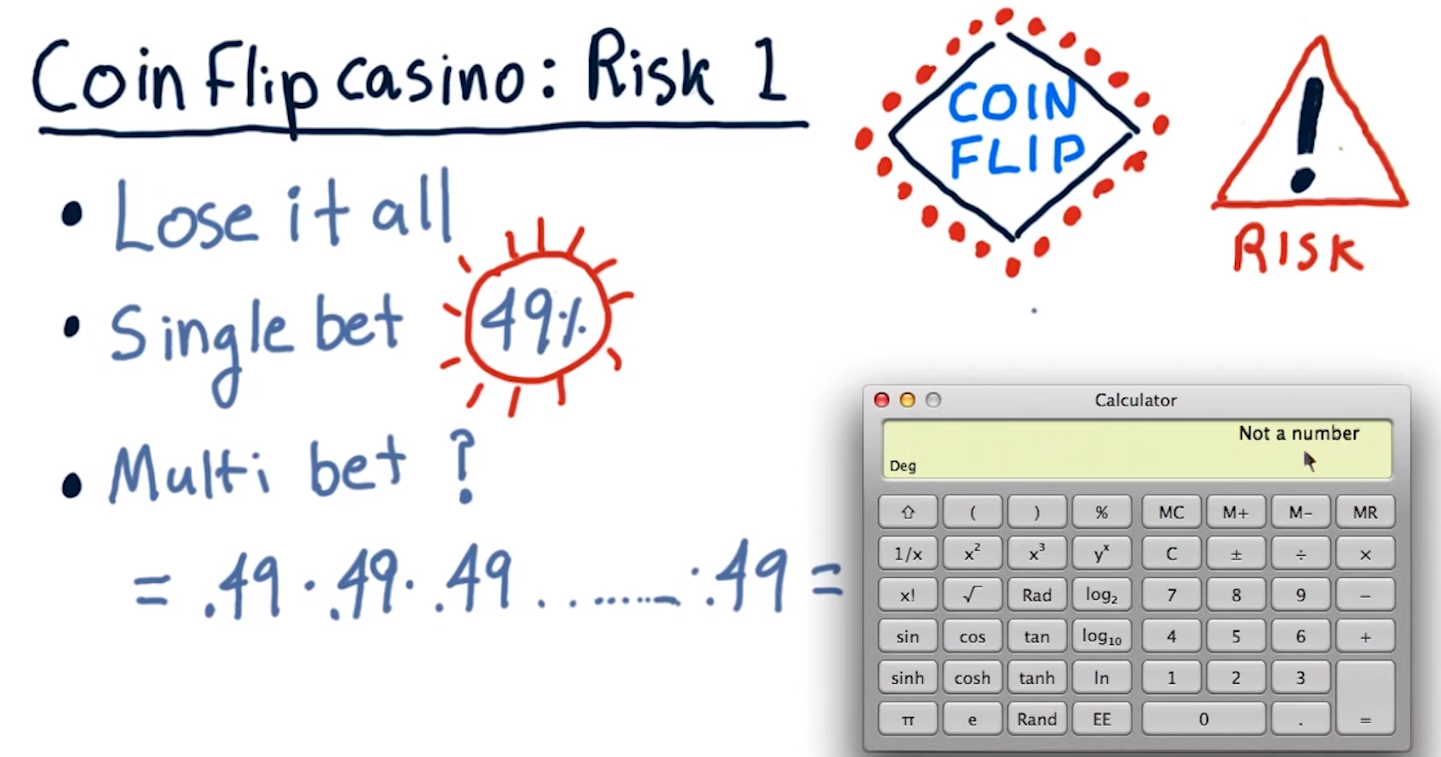 Coin Flip casino: Risk 1
COIN
FLIP
RISK
• Lose it all
• Single bet 49%
• Multi bet ?
= .49 · .49 · .49 . ....... · .49 =
Calculator
Not a number
Deg
⇧ ( ) % MC M+ M− MR
1/x x² x³ yˣ C ± ÷ ×
x! √ Rad log₂ 7 8 9 −
sin cos tan log₁₀ 4 5 6 +
sinh cosh tanh ln 1 2 3
π e Rand EE 0 . =